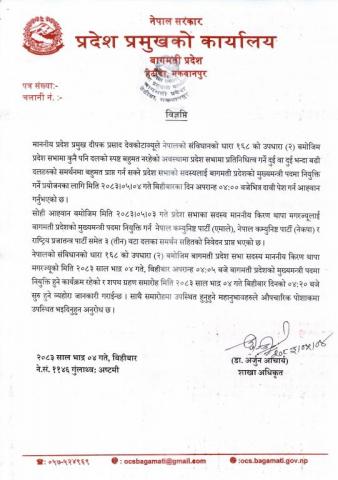 नेपाल सरकार
प्रदेश प्रमुखको कार्यालय
बागमती प्रदेश
हेटौंडा, मकवानपुर
पत्र संख्या:-
चलानी नं. :-
विज्ञप्ति
माननीय प्रदेश प्रमुख दीपक प्रसाद देवकोटाज्यूले नेपालको संविधानको धारा १६८ को उपधारा (२) बमोजिम
प्रदेश सभामा कुनै पनि दलको स्पष्ट बहुमत नरहेको अवस्थामा प्रदेश सभामा प्रतिनिधित्व गर्ने दुई वा दुई भन्दा बढी
दलहरुको समर्थनमा बहुमत प्राप्त गर्न सक्ने प्रदेश सभाको सदस्यलाई बागमती प्रदेशको मुख्यमन्त्री पदमा नियुक्ति
गर्ने प्रयोजनका लागि मिति २०८३।०५।०४ गते बिहीबारका दिन अपरान्ह ०४:०० बजेभित्र दाबी पेश गर्न आव्हान
गर्नुभएको छ।
सोही आव्हान बमोजिम मिति २०८३।०५।०३ गते प्रदेश सभाका सदस्य माननीय किरण थापा मगरज्यूलाई
बागमती प्रदेशको मुख्यमन्त्री पदमा नियुक्ति गर्न नेपाल कम्युनिष्ट पार्टी (एमाले), नेपाल कम्युनिष्ट पार्टी (नेकपा) र
राष्ट्रिय प्रजातन्त्र पार्टी समेत ३ (तीन) वटा दलका समर्थन सहितको निवेदन प्राप्त भएको छ।
नेपालको संविधानको धारा १६८ को उपधारा (२) बमोजिम बागमती प्रदेश सभा सदस्य माननीय किरण थापा
मगरज्यूको मिति २०८३ साल भाद्र ०४ गते, बिहीबार अपरान्ह ०४:०५ बजे बागमती प्रदेशको मुख्यमन्त्री पदमा
नियुक्ति हुने कार्यक्रम रहेको र शपथ ग्रहण समारोह मिति २०८३ साल भाद्र ०४ गते बिहीबार दिनको ०४:२० बजे
सुरु हुने व्यहोरा जानकारी गराईन्छ। साथै समारोहमा उपस्थित हुनुहुने महानुभावहरुले औपचारिक पोशाकमा
उपस्थित भइदिनुहुन अनुरोध छ।
२०८३ साल भाद्र ०४ गते, बिहीबार
ने.सं. ११४६ गुंलाथ्व: अष्टमी
२०८३/०५/०४
(डा. अर्जुन आचार्य)
शाखा अधिकृत
: ०५७-५२४९६९
: ocsbagamati@gmail.com
:ocs.bagamati.gov.np